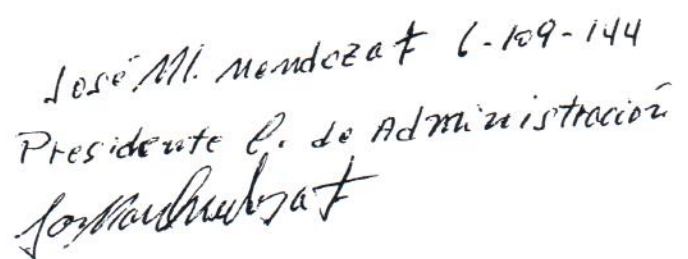 José M. Mendoza F 6-109-144
Presidente C. de Administración